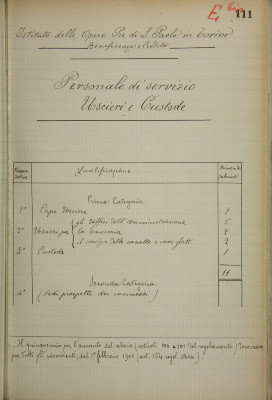 111
Istituto delle Opere Pie di S. Paolo in Torino
Beneficenza e Credito
Personale di servizio
Uscieri e Custode
Qualificazione
Prima Categoria
1° Capo Usciere 1
gli Uffici dell'Amministrazione 5
2° Uscieri per la Tesoreria 2
il servizio delle cassette e casse forti 2
3° Custode 1
11
Seconda Categoria
4° (Vedi prospetto dei commessi)
Il quinquennio per l'aumento del salario (articoli 100 e 101 del regolamento)
per tutti gli inservienti, dal 1° febbraio 1901 (art. 154 regol.